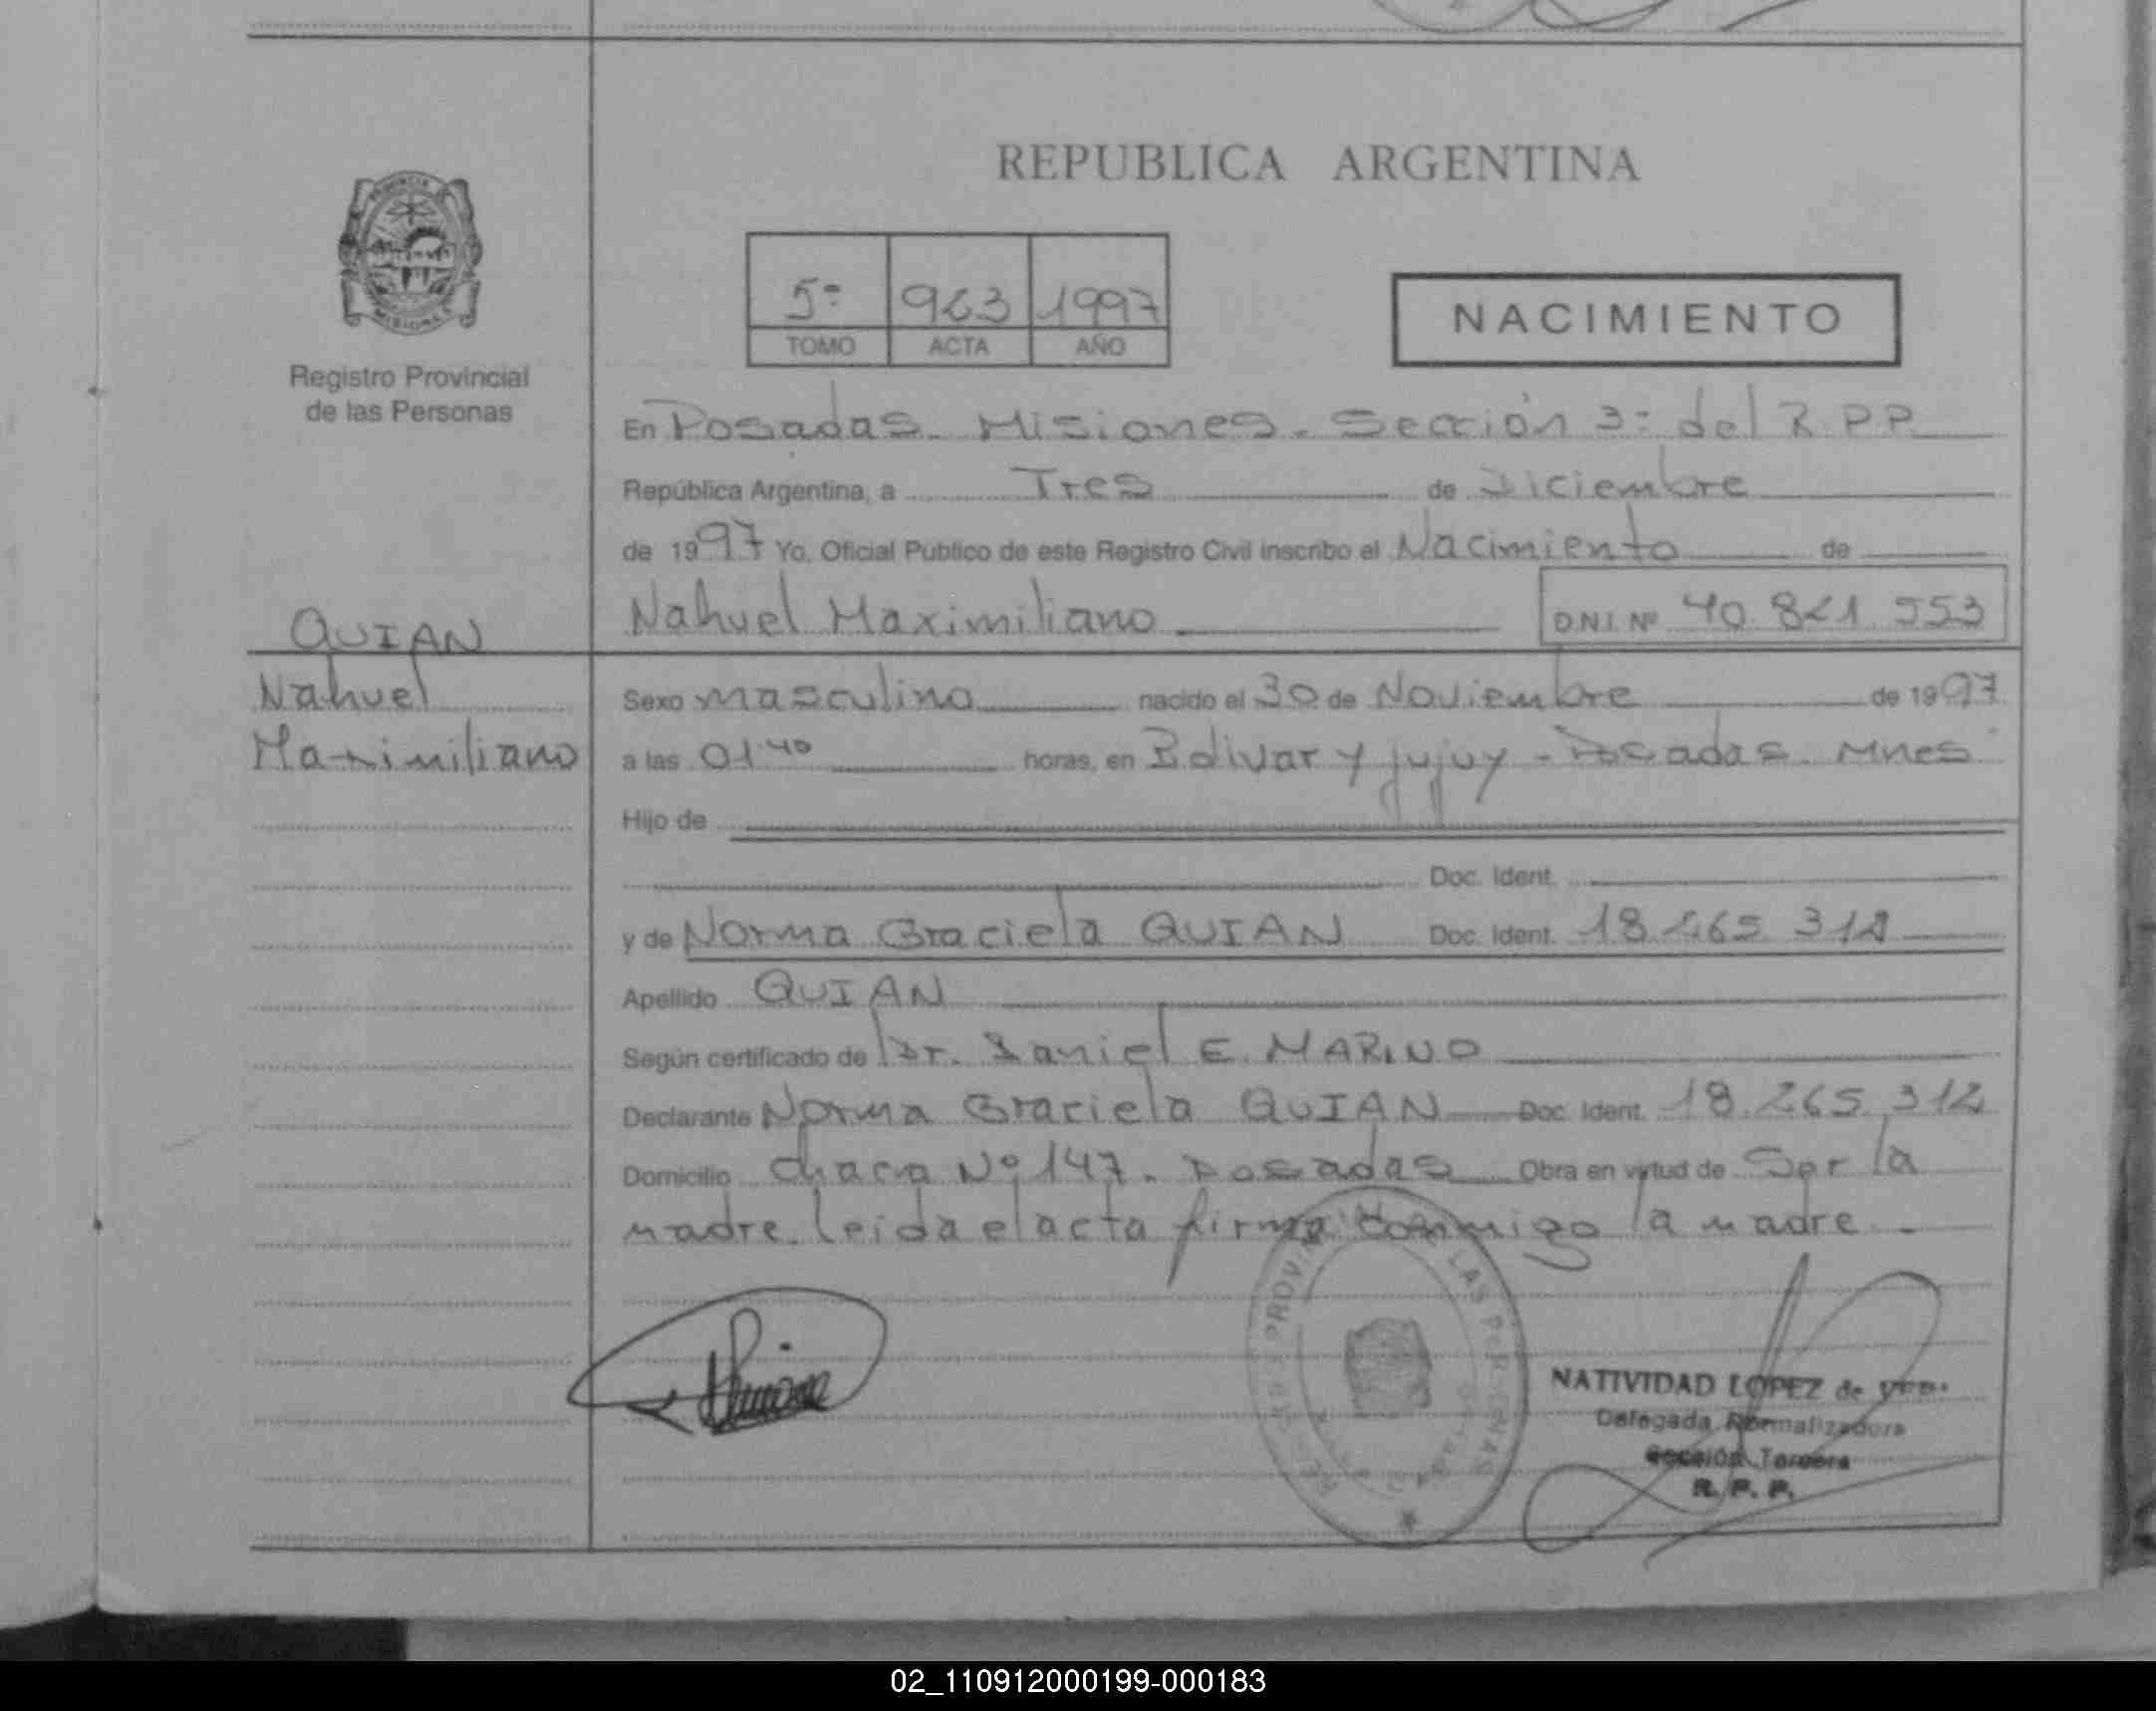 REPUBLICA ARGENTINA
5º 963 1997
TOMO ACTA AÑO
NACIMIENTO
MISIONES
Registro Provincial
de las Personas
QUIAN
Nahuel
Maximiliano
En Posadas. Misiones. Sección 3º del R.P.P.
República Argentina, a Tres de Diciembre
de 1997 Yo, Oficial Público de este Registro Civil inscribo el Nacimiento de
Nahuel Maximiliano D.N.I. Nº 40.821.553
Sexo masculino nacido el 30 de Noviembre de 1997
a las 01:40 horas, en Bolivar y jujuy - Posadas. Mnes
Hijo de
Doc. Ident.
y de Norma Graciela QUIAN Doc. Ident. 18.265.312
Apellido QUIAN
Según certificado de Dr. Daniel E. MARINO
Declarante Norma Graciela QUIAN Doc. Ident. 18.265.312
Domicilio Chacra Nº 147. Posadas Obra en virtud de Ser la
madre. Leida el acta firma conmigo la madre.
NATIVIDAD LOPEZ de
Delegada Normalizadora
Sección Tercera
R. P. P.
02_110912000199-000183